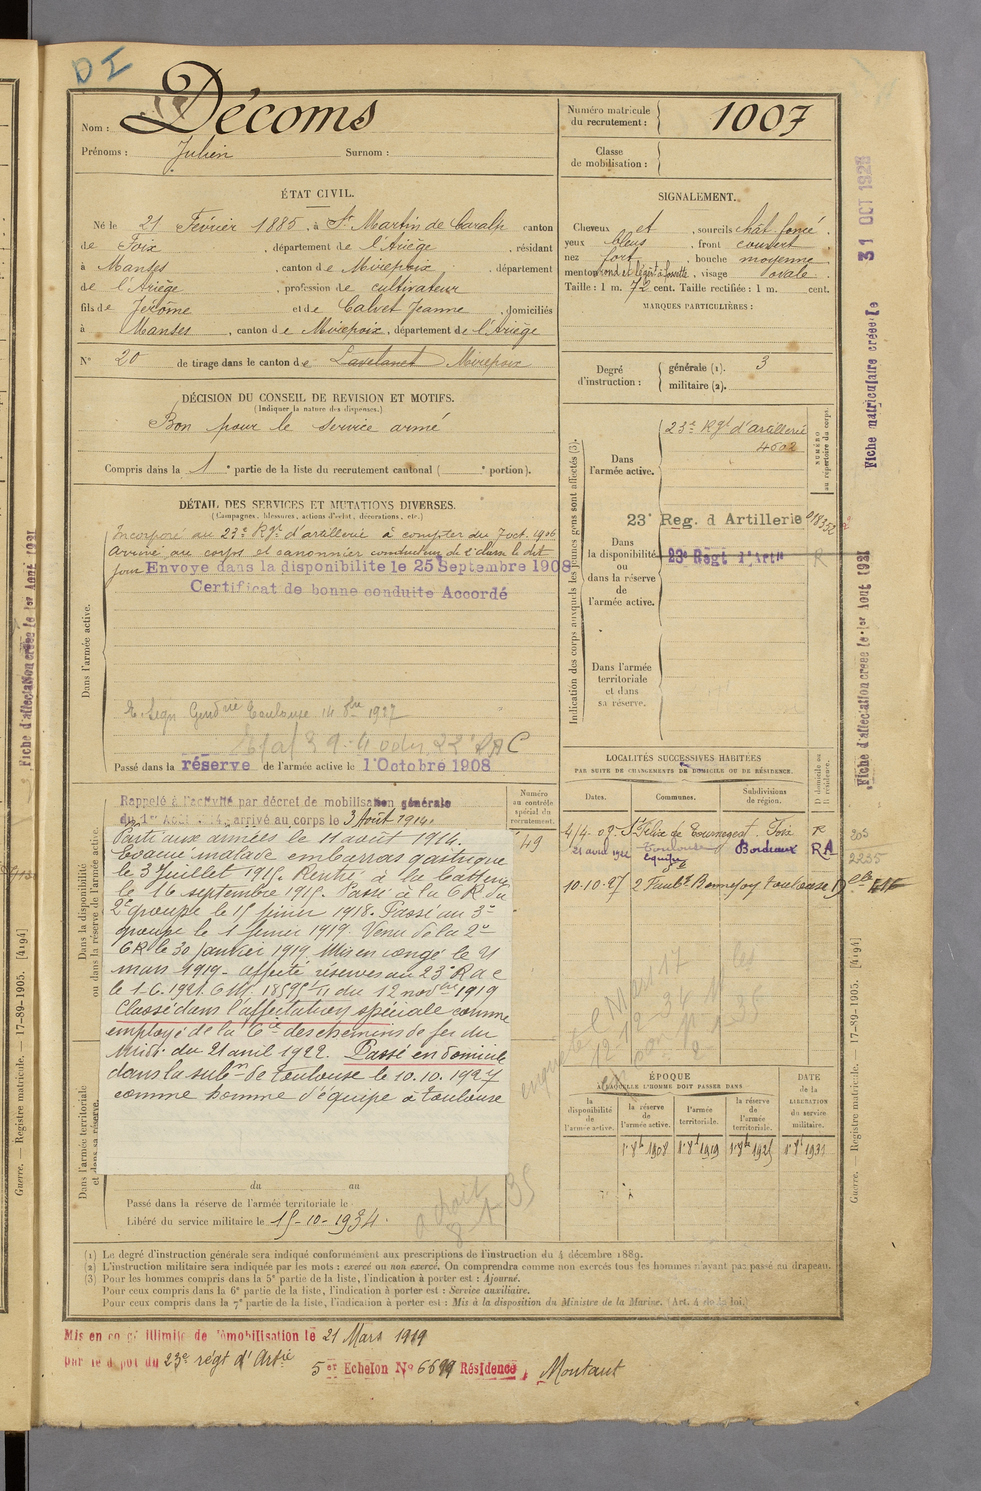 DI
Nom : Décoms
Prénoms : Julien Surnom :
Numéro matricule du recrutement : 1007
Classe de mobilisation :
ÉTAT CIVIL.
Né le 21 Février 1885, à St Martin de Caralp canton
de Foix, département de l'Ariège, résidant
à Manses, canton de Mirepoix, département
de l'Ariège, profession de cultivateur
fils de Jérôme et de Calvet Jeanne, domiciliés
à Manses, canton de Mirepoix, département de l'Ariège
N° 20 de tirage dans le canton de Lavelanet Mirepoix
DÉCISION DU CONSEIL DE REVISION ET MOTIFS.
(Indiquer la nature des dispenses.)
Bon pour le service armé
Compris dans la 1e partie de la liste du recrutement cantonal ( e portion).
SIGNALEMENT.
Cheveux et, sourcils chât foncé.
yeux bleus, front couvert
nez fort, bouche moyenne
menton rond et légèrt à fossette, visage ovale.
Taille : 1 m. 72 cent. Taille rectifiée : 1 m. cent.
MARQUES PARTICULIÈRES :
Degré d'instruction : générale (1). 3
militaire (2).
DÉTAIL DES SERVICES ET MUTATIONS DIVERSES.
(Campagnes, blessures, actions d'éclat, décorations, etc.)
Dans l'armée active.
Incorporé au 23e Rgt d'artillerie à compter du 7 oct. 1906
arrivé au corps et canonnier conducteur de 2e classe le dit
jour Envoyé dans la disponibilité le 25 Septembre 1908
Certificat de bonne conduite Accordé
Toulouse 14 1927
Passé dans la réserve de l'armée active le 1 Octobre 1908
Indication des corps auxquels les jeunes gens sont affectés (3).
NUMÉRO au répertoire du corps.
Dans l'armée active.
23e Rgt d'artillerie
4602
23e Reg. d Artillerie
Dans la disponibilité ou dans la réserve de l'armée active.
23e Régt d'Artie
R
Dans l'armée territoriale et dans sa réserve.
Dans la disponibilité ou dans la réserve de l'armée active.
Rappelé à l'activité par décret de mobilisation générale
du 1er Août 1914, arrivé au corps le 3 Août 1914.
Parti aux armées le 11 août 1914.
Evacué malade embarras gastrique
le 3 Juillet 1915. Rentré à la batterie
le 16 septembre 1915. Passé à la CR du
2e groupe le 15 février 1918. Passé au 3e
groupe le 1 février 1919. Venu de la 2e
CR le 30 Janvier 1919. Mis en congé le 21
mars 1919. affecté réserves au 23e Rac
le 1.6.1921. C.M. 18595 1/11 du 12 novbre 1919
Classé dans l'affectation spéciale comme
employé de la Cie des chemins de fer du
Midi du 21 avril 1922. Passé en domicile
dans la subon de Toulouse le 10.10.1927
comme homme d'équipe à Toulouse
Numéro au contrôle spécial du recrutement.
49
Dans l'armée territoriale et dans sa réserve.
du au
Passé dans la réserve de l'armée territoriale le
Libéré du service militaire le 15-10-1934.
LOCALITÉS SUCCESSIVES HABITÉES
PAR SUITE DE CHANGEMENTS DE DOMICILE OU DE RÉSIDENCE.
Dates. Communes. Subdivisions de région. D domicile ou R résidence.
4/4-09 St Félix de Tournegat. Foix R
21 avril 1922 Toulouse Bordeaux RA
10-10-27 2 Faubg Bonnefoy Toulouse D
ÉPOQUE
A LAQUELLE L'HOMME DOIT PASSER DANS
la disponibilité de l'armée active.
la réserve de l'armée active.
l'armée territoriale.
la réserve de l'armée territoriale.
DATE de la LIBÉRATION du service militaire.
1r 8bre 1908 1r 8bre 1919 1r 8bre 1925 1r 8bre 1931
(1) Le degré d'instruction générale sera indiqué conformément aux prescriptions de l'instruction du 4 décembre 1889.
(2) L'instruction militaire sera indiquée par les mots : exercé ou non exercé. On comprendra comme non exercés tous les hommes n'ayant pas passé au drapeau.
(3) Pour les hommes compris dans la 5e partie de la liste, l'indication à porter est : Ajourné.
Pour ceux compris dans la 6e partie de la liste, l'indication à porter est : Service auxiliaire.
Pour ceux compris dans la 7e partie de la liste, l'indication à porter est : Mis à la disposition du Ministre de la Marine. (Art. 4 de la loi.)
Mis en congé illimité de démobilisation le 21 Mars 1919
par le dépôt du 23e régt d'Artie
5e Echelon N° 6699 Résidence, Montaut
Fiche matriculaire créée le 31 OCT 1928
Fiche d'affectation créée le 1er Août 1931
2235
Guerre. — Registre matricule. — 17-89-1905. [4194]
Fiche d'affectation créée le 1er Août 1931
Guerre. — Registre matricule. — 17-89-1905. [4194]